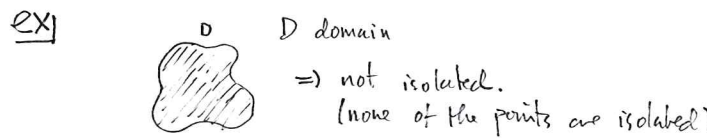 ex)
D
D domain
⇒ not isolated.
(none of the points are isolated)